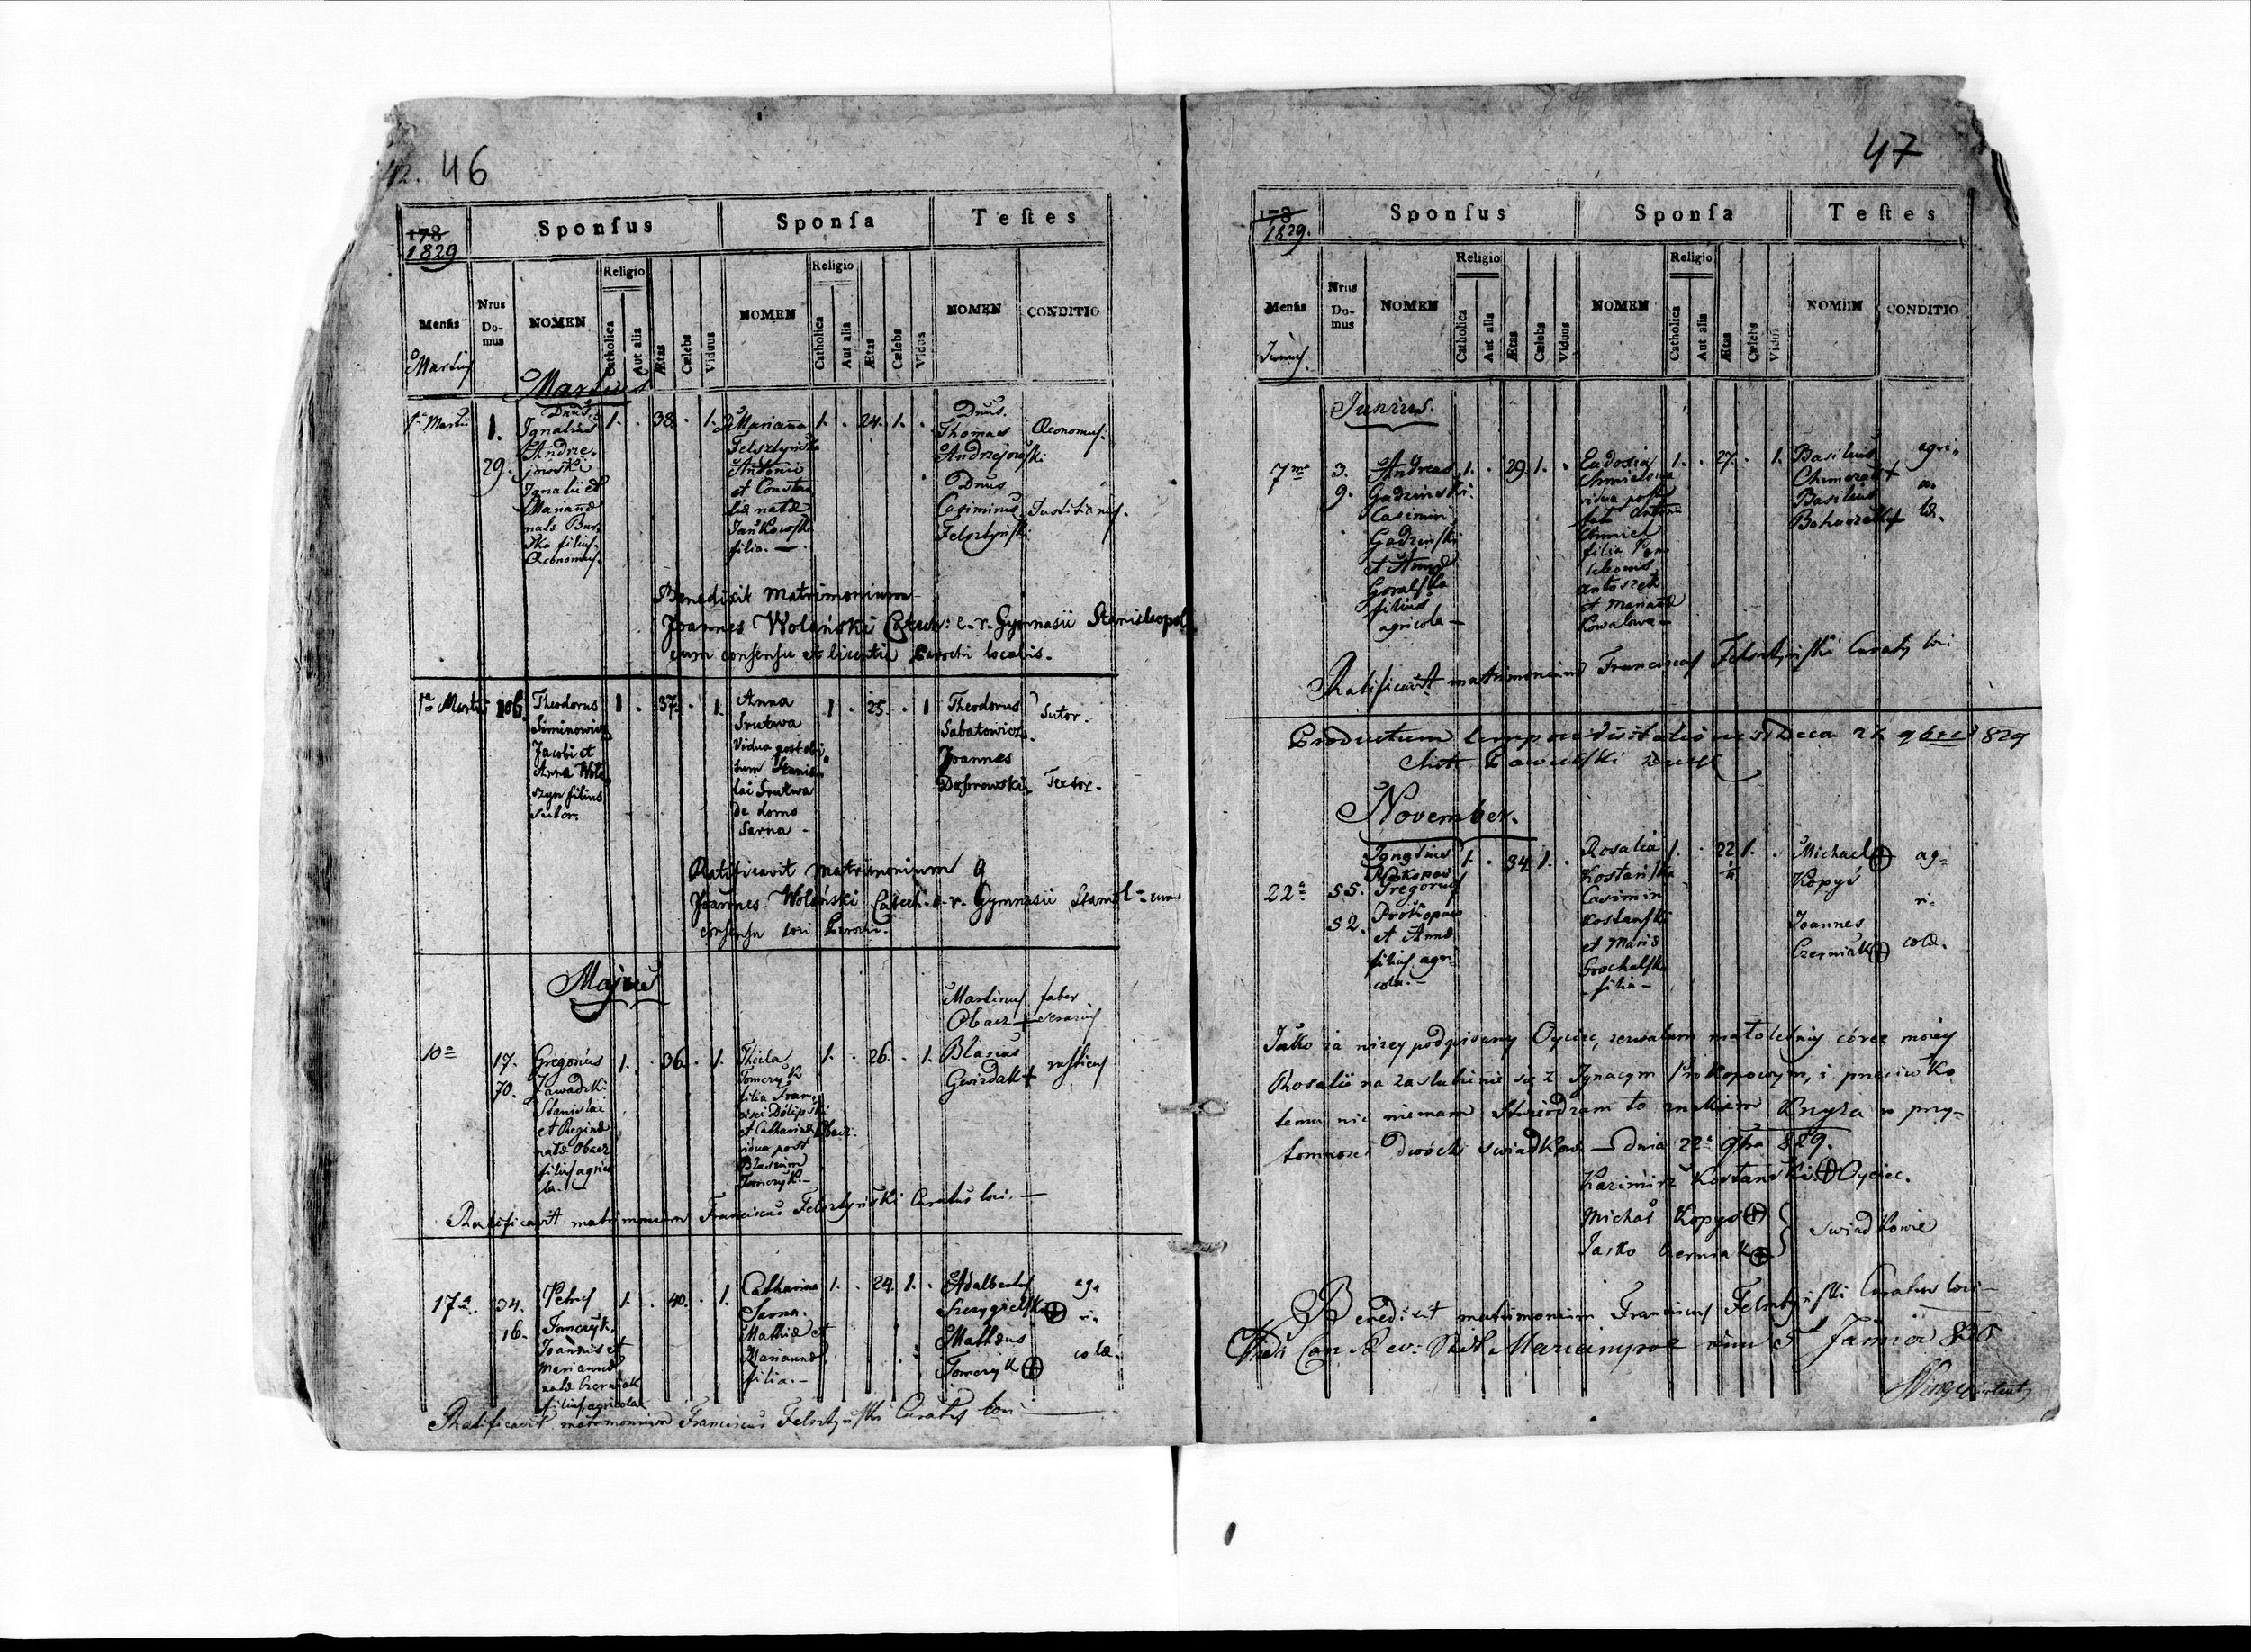 42. 46
178
1829
Sponſus
Sponſa
Teſtes
Menſis
Nrus Domus
NOMEN
Religio
Catholica
Aut alia
Ætas
Cælebs
Viduus
NOMEN
Religio
Catholica
Aut alia
Ætas
Cælebs
Vidua
NOMEN
CONDITIO
Martius
Martius
1a Martii
1.
29.
Dnus.
Ignatius
Andrze-
jowski
Ignatii et
Mariannæ
natæ Bur-
filius.
Œconomus.
1. . 38. . 1.
Marianna
Felsztyńska
Antonii
et Constan
tiæ natæ
Jankowska
filia. —
1. . 24. 1. .
Dnus.
Thomas
Andrzejowski
Œconomus.
Dnus
Casimirus
Felsztyński
Benedixit Matrimonium
Joannes Wolański Catech: c. r. Gymnasii Stanisleopol
cum consensu et licentia Parochi localis.
1a Martii
106.
Theodorus
Siminowicz
Jacobi et
Anna Wolo
szyn filius
sutor.
1 . 37. . 1.
Anna
Srutwa
Vidua post obi-
tum Stanis-
lai Srutwa
de domo
Sarna -
1 . 25. . 1
Theodorus
Sabatowicz.
Sutor.
Joannes
Dąbrowski
Textor.
Ratificavit Matrimonium
Joannes Wolański Catech. c. r. Gymnasii Stanisl= cum
consensu loci Parochi.
Majus
10a
17.
70.
Gregorius
Zawadzki
Stanislai
et Reginæ
natæ Obacz
filius agrico
la. —
1. . 36. . 1.
Thecla
Tomczyk
filia Fran-
cisci Dolipski
et Catharinæ Obacz.
vidua post
Blasium
Tomczyk. —
1. . 26. . 1.
Martinus
Obacz +
faber
Blasius
Gwizdak +
rusticus
Ratificavit matrimonium Franciscus Felsztyński Curatus loci. —
17a.
34.
16.
Petrus
Tomczyk.
Joannis et
Mariannæ
natæ Czerniak
filius agricola
1. . 40. . 1.
Catharina
Sarna.
Mathiæ et
Mariannæ
filia. —
1. . 24. 1. .
Adalbertus
Szczygielski ⊕
Mathæus
Tomczyk ⊕
ag-
ri-
colæ.
Ratificavit matrimonium Franciscus Felsztyński Curatus loci
47
178
1829.
Sponſus
Sponſa
Teſtes
Menſis
Nrus Domus
NOMEN
Religio
Catholica
Aut alia
Ætas
Cælebs
Viduus
NOMEN
Religio
Catholica
Aut alia
Ætas
Cælebs
Vidua
NOMEN
CONDITIO
Junius.
Junius.
7ma
3.
9.
Andreas
Gadzinski.
Casimiri
Gadzinski
et Annæ
Goralska
filius
agricola —
1. . 29. 1. .
Eudosia
Chmielowa
vidua post
fata Antonii
Chmiel
filia Pan
teleonis
Antoszek
et Mariannæ
Kowalowa —
1. . 27. . 1.
Basilius
Chimczak +
Basilius
agri-
co
læ.
Ratificavit matrimonium Franciscus Felsztyński Curatus loci
Productum tempore Visitationis 829
November.
22a
55.
52.
Ignatius
Prokopow
Gregorius
Prokopow
et Annæ
filius agri-
cola. —
1. . 34. 1. .
Rosalia
Kostańska
Casimiri
Kostanski
et Mariæ
Grochalska
- filia -
1. . 22 1. .
Michael ⊕
Kopyś
Joannes
Czerniak ⊕
ag-
ri-
colæ.
Jako ia niżey podpisany Oyciec, zezwalam małoletniey córce moiey
Rosalii na zaslubienie się z Ignacym Prokopowym, i przeciwko
temu nic niemam stwierdzam to znakiem Krzyża w przy-
tomnosci dwóch swiadków — dnia 22a 9bra 829.
Kazimirz Kostański ⊕ Oyciec.
Michał Kopyś ⊕
Jaśko Czerniak ⊕
swiadkowie
Benedixit matrimonium Franciscus Felsztyński Curatus loci —
Mariampol 5 830